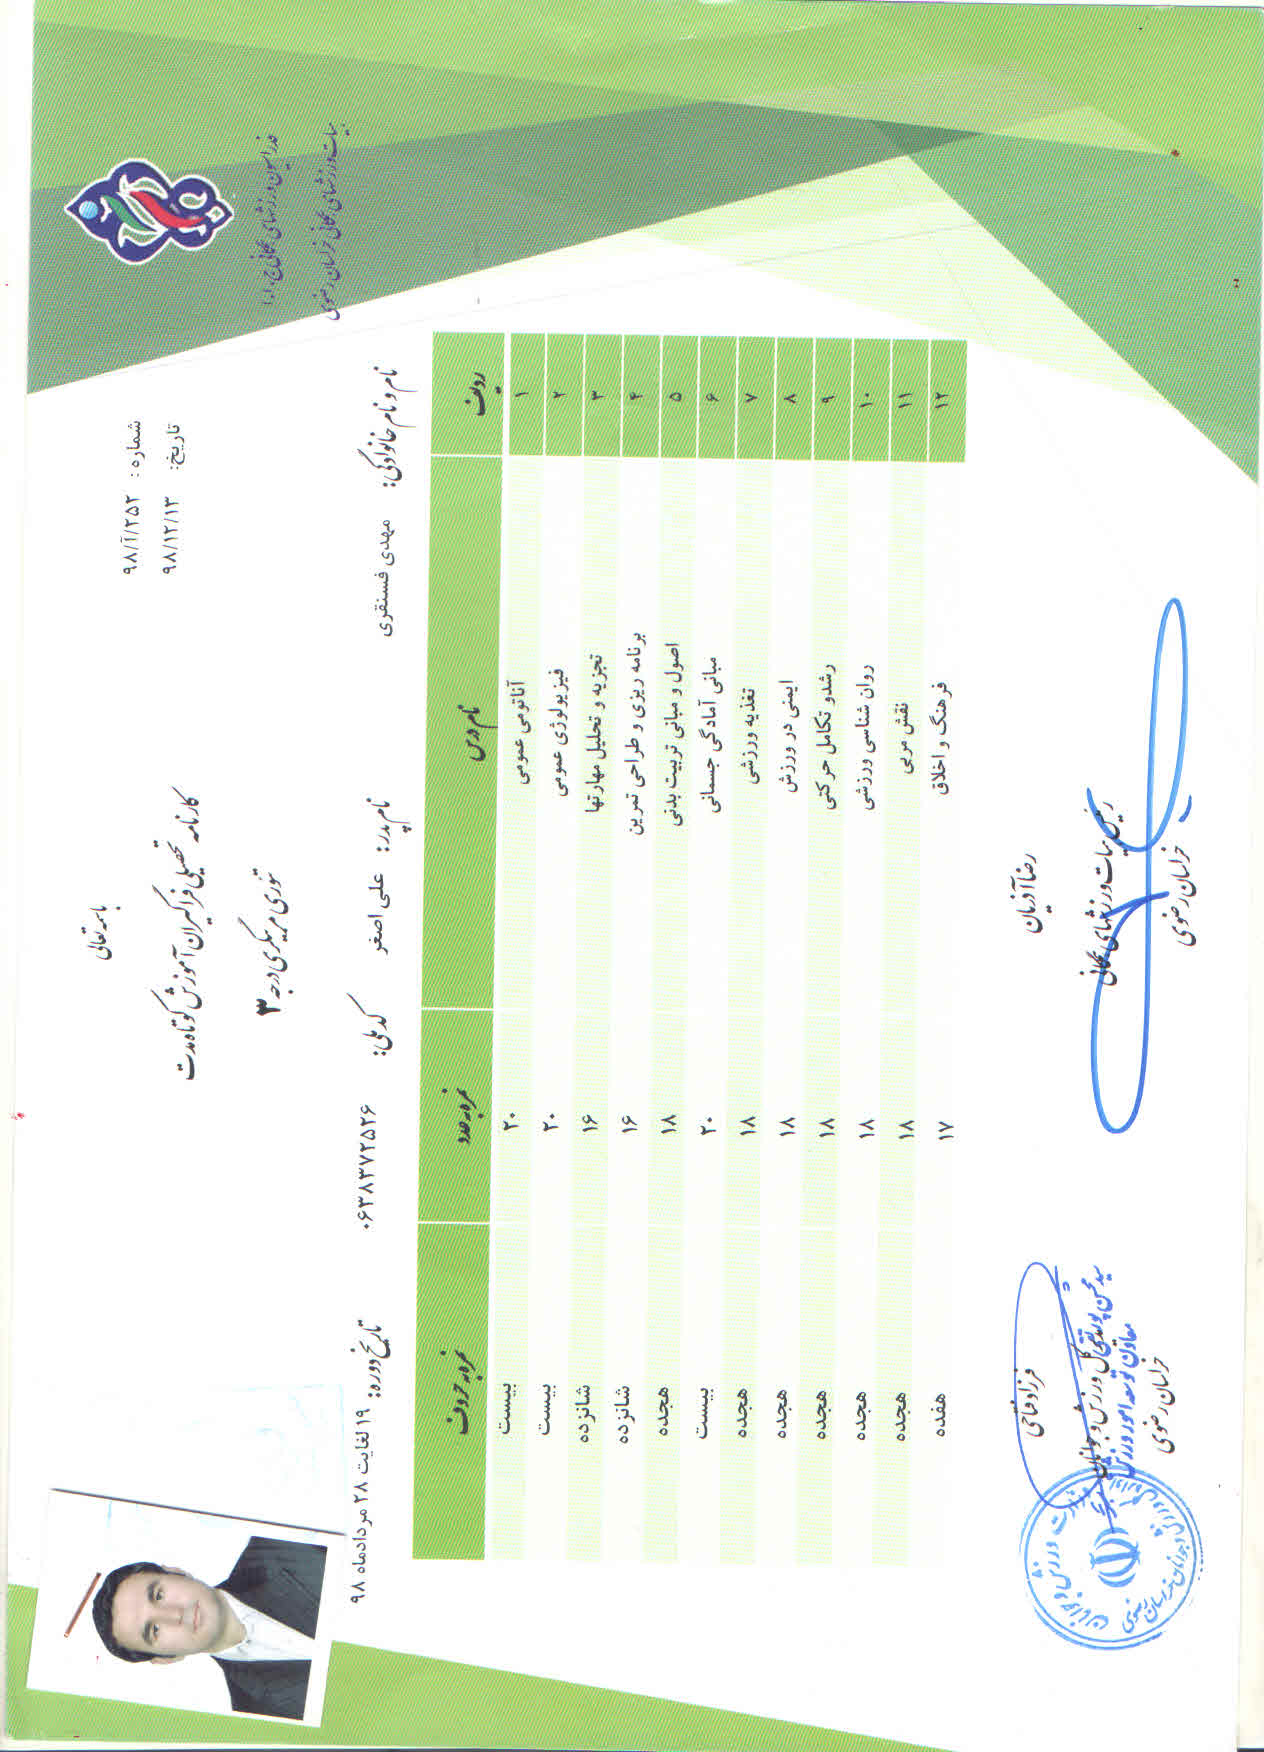 فدراسیون ورزشهای همگانی ج.ا.ا
هیات ورزشهای همگانی خراسان رضوی
باسمه تعالی
کارنامه تحصیلی فراگیران آموزش کوتاه مدت
تئوری مربیگری درجه ۳
شماره : ۹۸/آ/۲۵۲
تاریخ: ۹۸/۱۲/۱۳
نام و نام خانوادگی: مهدی فسنقری نام پدر: علی اصغر کد ملی: ۰۶۳۸۳۷۲۵۲۶ تاریخ دوره: ۱۹ لغایت ۲۸ مردادماه ۹۸
ردیف نام درس نمره به عدد نمره به حروف
۱ آناتومی عمومی ۲۰ بیست
۲ فیزیولوژی عمومی ۲۰ بیست
۳ تجزیه و تحلیل مهارتها ۱۶ شانزده
۴ برنامه ریزی و طراحی تمرین ۱۶ شانزده
۵ اصول و مبانی تربیت بدنی ۱۸ هجده
۶ مبانی آمادگی جسمانی ۲۰ بیست
۷ تغذیه ورزشی ۱۸ هجده
۸ ایمنی در ورزش ۱۸ هجده
۹ رشدو تکامل حرکتی ۱۸ هجده
۱۰ روان شناسی ورزشی ۱۸ هجده
۱۱ نقش مربی ۱۸ هجده
۱۲ فرهنگ و اخلاق ۱۷ هفده
رضا آذریان
رئیس هیات ورزشهای همگانی
خراسان رضوی
فرزاد فتاحی
کل ورزش و جوانان
خراسان رضوی
معاون توسعه امور ورزش
وزارت ورزش و جوانان